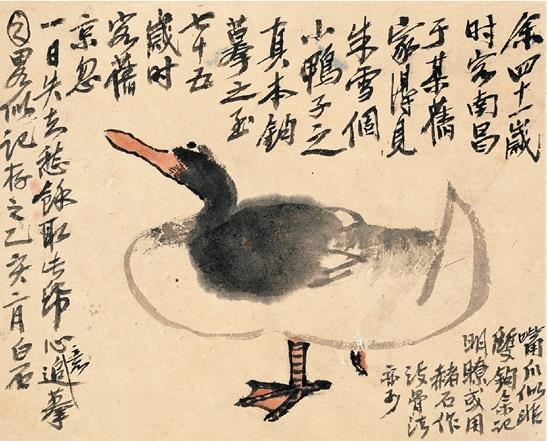 余四十一歲
时客南昌
于某舊
家得見
朱雪個
小鴨子之
真本鈎
摹之至
七十五
歲时
客舊
京忽
一日失去愁餘取此帋心追意摹
之畧似記存之乙亥二月白石
嘴爪似非
雙鈎余記
明瞭或用
赭石作
没骨法
亦可